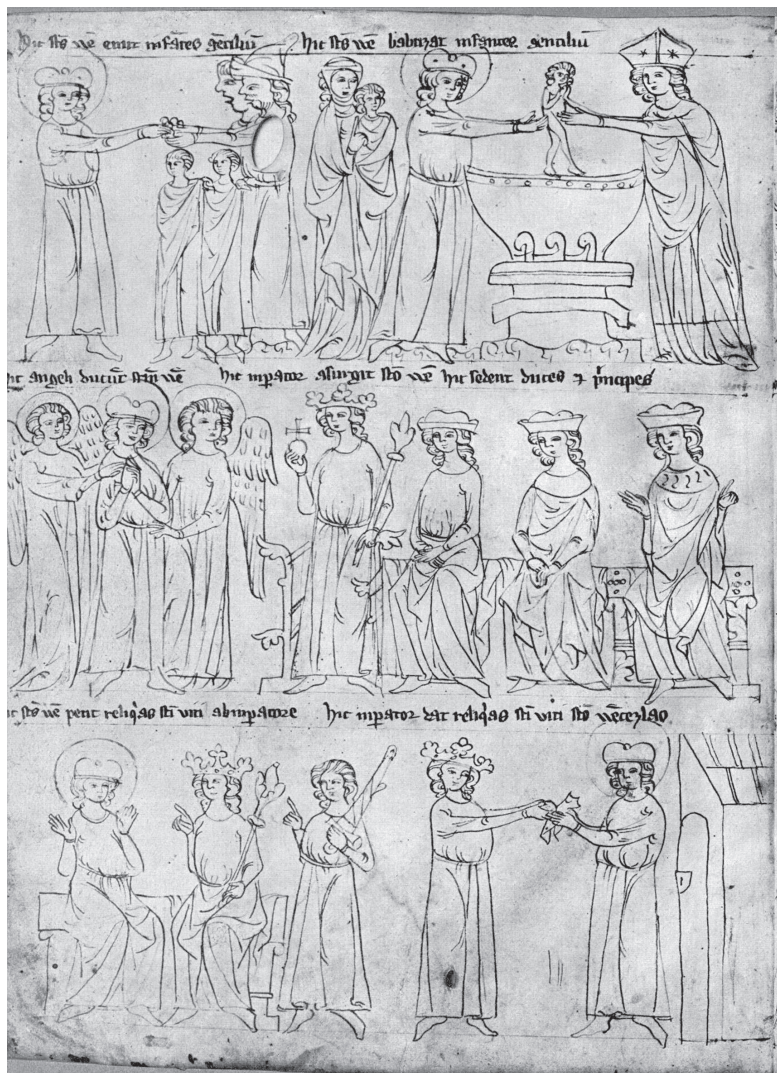 Hic sc̄s wē emit infātes gētiliū hic sc̄s wē babtizat infantes gentiliū
hic angeli ducūt sc̄m wē hic inp̄ator asurgit sc̄o wē hic sedent duces ⁊ p̄ncipes
hic sc̄s wē petit reliq̄as sc̄i viti ab inp̄atore hic inp̄ator dat reliq̄as sc̄i viti sc̄o wēcezlao